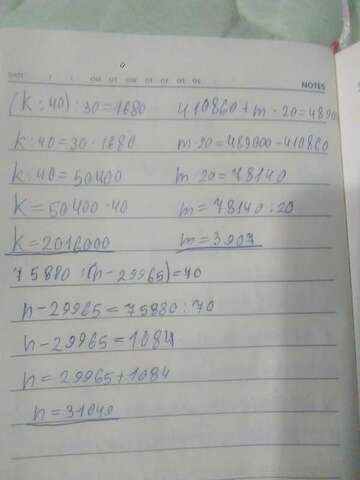 DATE / /
NOTES
(k:40):30=1680
k:40=30·1680
k:40=50400
k=50400·40
k=2016000
410860+m·20=4890
m·20=489000-410860
m·20=78140
m=78140:20
m=3907
75880:(n-29965)=70
n-29965=75880:70
n-29965=1084
n=29965+1084
n=31049